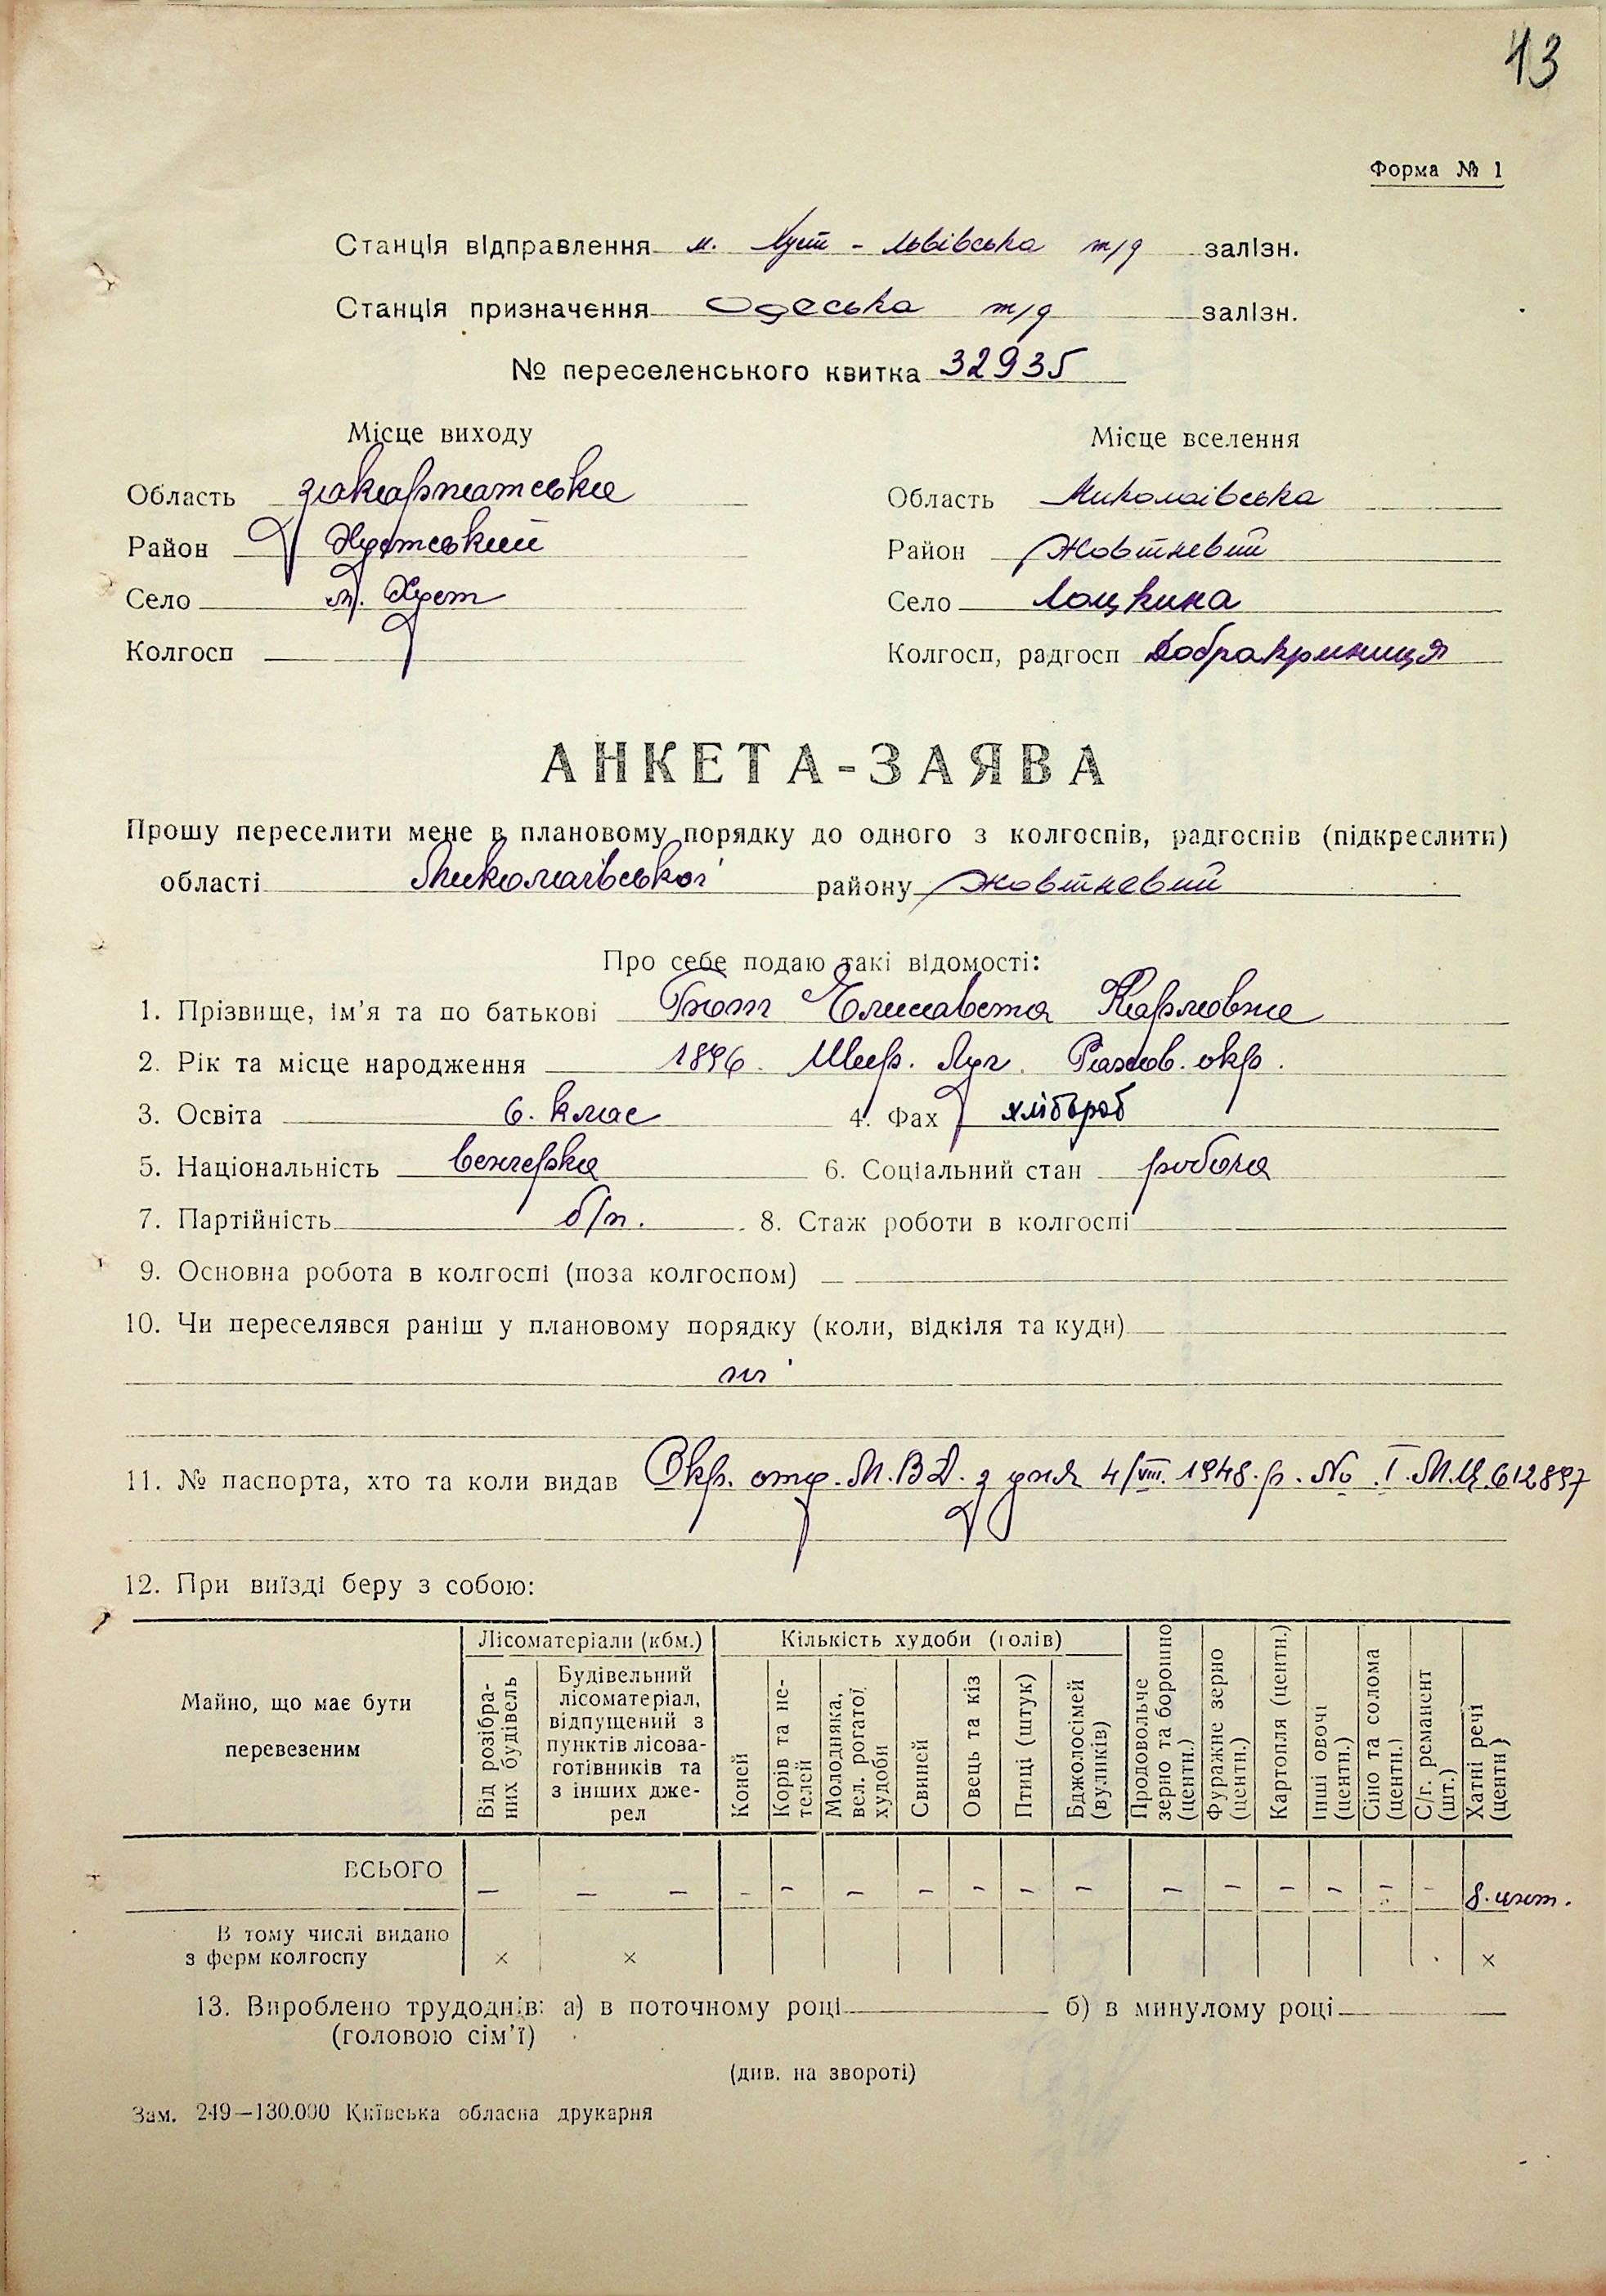 43
Форма № 1
Станція відправлення м. Хуст - Львівська т/д залізн.
Станція призначення Одеська т/д залізн.
№ переселенського квитка 32935
Місце виходу
Місце вселення
Область закарпатська
Область Миколаївська
Район Хустський
Район Жовтневий
Село м. Хуст
Село Лоцкина
Колгосп —
Колгосп, радгосп Добракриниця
АНКЕТА-ЗАЯВА
Прошу переселити мене в плановому порядку до одного з колгоспів, радгоспів (підкреслити)
області Миколаївської району Жовтневий
Про себе подаю такі відомості:
1. Прізвище, ім'я та по батькові Елисавета Карловна
2. Рік та місце народження 1896. Шир. Луг. Рахов. окр.
3. Освіта 6. клас 4. Фах хлібороб
5. Національність венгерка 6. Соціальний стан робоча
7. Партійність б/п. 8. Стаж роботи в колгоспі
9. Основна робота в колгоспі (поза колгоспом) —
10. Чи переселявся раніш у плановому порядку (коли, відкіля та куди)
ні
11. № паспорта, хто та коли видав Окр. отд. М.В.Д. з дня 4/VIII. 1948. р. No I.М.Ц.612897
12. При виїзді беру з собою:
Майно, що має бути перевезеним
Лісоматеріали (кбм.)
Від розібраних будівель
Будівельний лісоматеріал, відпущений з пунктів лісозаготівників та з інших джерел
Кількість худоби (голів)
Коней
Корів та нетелей
Молодняка, вел. рогатої худоби
Свиней
Овець та кіз
Птиці (штук)
Бджолосімей (вуликів)
Продовольче зерно та борошно (центн.)
Фуражне зерно (центн.)
Картопля (центн.)
Інші овочі (центн.)
Сіно та солома (центн.)
С/г. реманент (шт.)
Хатні речі (центн)
ВСЬОГО — — — — — — — — — — — — — — — — — 8. цнт.
В тому числі видано з ферм колгоспу × × ×
13. Вироблено трудоднів: а) в поточному році б) в минулому році
(головою сім'ї)
(див. на звороті)
Зам. 249—130.000 Київська обласна друкарня